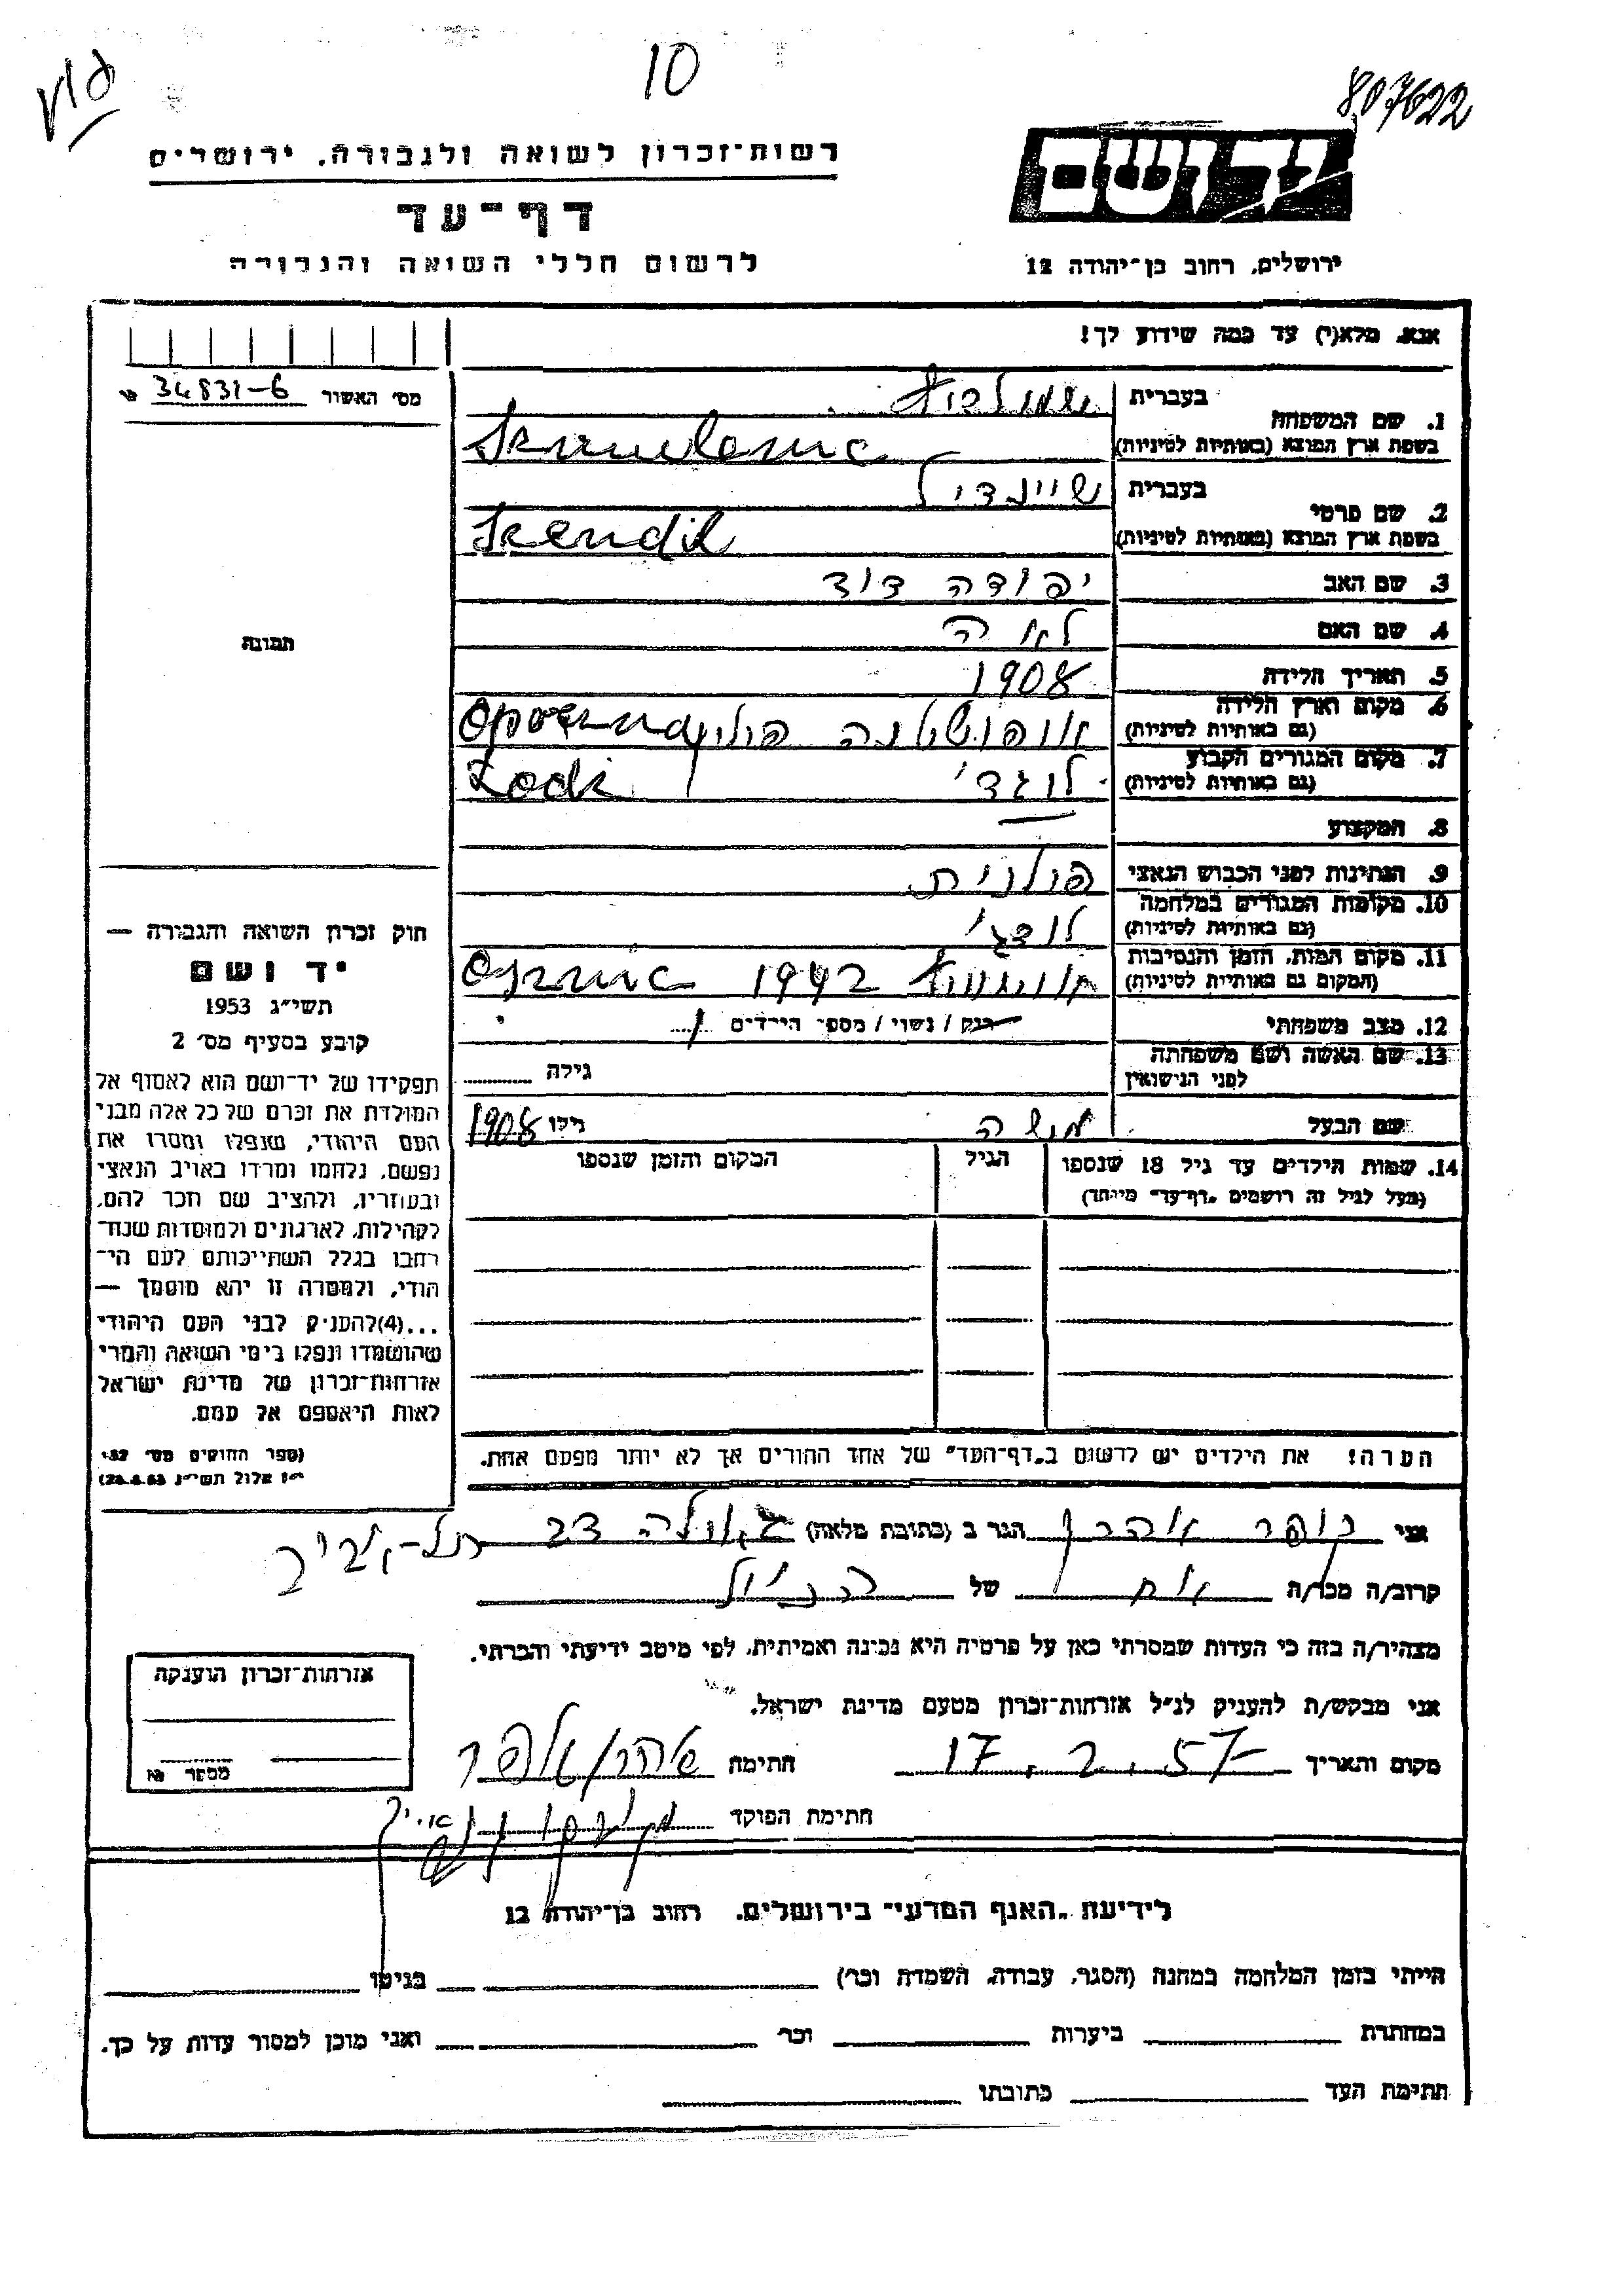 10
807622
רשות־זכרון לשואה ולגבורה, ירושלים
דף־עד
לרשום חללי השואה והגבורה
יד ושם
ירושלים, רחוב בן־יהודה 12
אנא, מלא(י) עד כמה שידוע לך!
מס׳ האשור 34831-6
בעברית
1. שם המשפחה
בשפת ארץ המוצא (באותיות לטיניות)
בעברית שיינדיל
2. שם פרטי
בשפת ארץ המוצא (באותיות לטיניות)
3. שם האב יהודה דוד
4. שם האם לאה
5. תאריך הלידה 1908
6. מקום וארץ הלידה
(גם באותיות לטיניות)
7. מקום המגורים הקבוע
(גם באותיות לטיניות) לודז׳ Lodz
8. המקצוע
9. הנתינות לפני הכבוש הנאצי פולנית
10. מקומות המגורים במלחמה
(גם באותיות לטיניות)
11. מקום המות, הזמן והנסיבות
(המקום גם באותיות לטיניות) 1942
12. מצב משפחתי רוק / נשוי / מספר הילדים 1
13. שם האשה ושם משפחתה
לפני הנישואין גילה
שם הבעל משה גילו 1908
14. שמות הילדים עד גיל 18 שנספו
(מעל לגיל זה רושמים „דף־עד״ מיוחד)
הגיל
המקום והזמן שנספו
הערה! את הילדים יש לרשום ב„דף־העד״ של אחד ההורים אך לא יותר מפעם אחת.
תמונה
חוק זכרון השואה והגבורה —
יד ושם
תשי״ג 1953
קובע בסעיף מס׳ 2
תפקידו של יד־ושם הוא לאסוף אל
המולדת את זכרם של כל אלה מבני
העם היהודי, שנפלו ומסרו את
נפשם, נלחמו ומרדו באויב הנאצי
ובעוזריו, ולהציב שם וזכר להם,
לקהילות, לארגונים ולמוסדות שנח־
רבו בגלל השתייכותם לעם הי־
הודי, ולמטרה זו יהא מוסמך —
...(4)להעניק לבני העם היהודי
שהושמדו ונפלו בימי השואה והמרי
אזרחות־זכרון של מדינת ישראל
לאות היאספם אל עמם.
(ספר החוקים מס׳ 132
י״ז אלול תשי״ג 28.8.53)
אני אהרן הגר ב (כתובת מלאה) גאולה תל-אביב
קרוב/ה מכר/ה אח של הנ״ל
מצהיר/ה בזה כי העדות שמסרתי כאן על פרטיה היא נכונה ואמיתית, לפי מיטב ידיעתי והכרתי.
אני מבקש/ת להעניק לנ״ל אזרחות־זכרון מטעם מדינת ישראל.
מקום ותאריך 17.2.57 חתימה
חתימת הפוקד
אזרחות־זכרון הוענקה
מספר
לידיעת „האגף המדעי״ בירושלים, רחוב בן־יהודה 12
הייתי בזמן המלחמה במחנה (הסגר, עבודה, השמדה וכו׳) בגיטו
במחתרת ביערות וכו׳ ואני מוכן למסור עדות על כך.
חתימת העד כתובתו